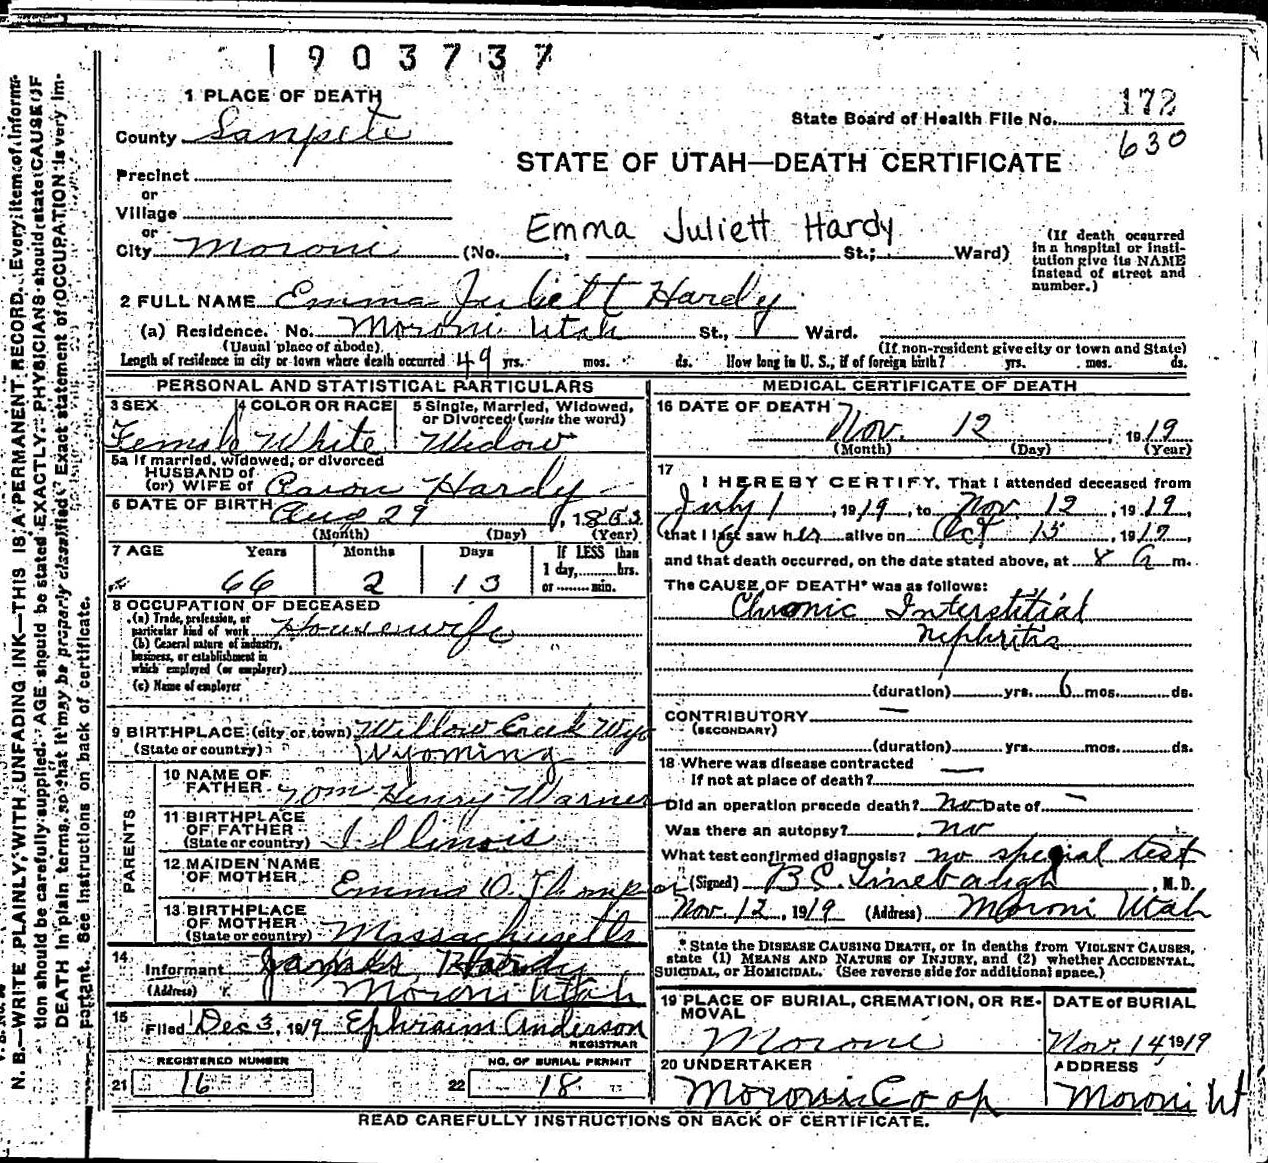 1903737
1 PLACE OF DEATH
County Sanpete
State Board of Health File No. 172
630
STATE OF UTAH—DEATH CERTIFICATE
Precinct
or
Village
or
City Moroni (No. , St.; Ward)
Emma Juliett Hardy
(If death occurred
in a hospital or insti-
tution give its NAME
instead of street and
number.)
2 FULL NAME Emma Juliett Hardy
(a) Residence. No. Moroni Utah St., Ward.
(Usual place of abode) (If non-resident give city or town and State)
Length of residence in city or town where death occurred 49 yrs. mos. ds. How long in U. S., if of foreign birth? yrs. mos. ds.
PERSONAL AND STATISTICAL PARTICULARS
3 SEX 4 COLOR OR RACE 5 Single, Married, Widowed,
or Divorced (write the word)
Female White Widow
5a If married, widowed, or divorced
HUSBAND of
(or) WIFE of Aaron Hardy
6 DATE OF BIRTH Aug 29, 1853
(Month) (Day) (Year)
7 AGE Years Months Days If LESS than
1 day, hrs.
66 2 13 or min.
8 OCCUPATION OF DECEASED
(a) Trade, profession, or
particular kind of work Housewife
(b) General nature of industry,
business, or establishment in
which employed (or employer)
(c) Name of employer
9 BIRTHPLACE (city or town) Willow Creek Wyo
(State or country) Wyoming
PARENTS
10 NAME OF
FATHER Wm Henry Warner
11 BIRTHPLACE
OF FATHER
(State or country) Illinois
12 MAIDEN NAME
OF MOTHER Emma O. Thompson
13 BIRTHPLACE
OF MOTHER
(State or country) Massachusetts
14
Informant James Hardy
(Address) Moroni Utah
15
Filed Dec 3, 1919 Ephraim Anderson
REGISTRAR
REGISTERED NUMBER NO. OF BURIAL PERMIT
21 16 22 18
MEDICAL CERTIFICATE OF DEATH
16 DATE OF DEATH
Nov. 12, 1919
(Month) (Day) (Year)
17
I HEREBY CERTIFY, That I attended deceased from
July 1, 1919, to Nov. 12, 1919,
that I last saw her alive on Oct 15, 1919,
and that death occurred, on the date stated above, at 8 a m.
The CAUSE OF DEATH* was as follows:
Chronic Interstitial
Nephritis
(duration) yrs. 6 mos. ds.
CONTRIBUTORY —
(SECONDARY)
(duration) yrs. mos. ds.
18 Where was disease contracted
if not at place of death? —
Did an operation precede death? no Date of —
Was there an autopsy? no
What test confirmed diagnosis? no special test
(Signed) B C Linebaugh, M. D.
Nov. 12, 1919 (Address) Moroni Utah
* State the DISEASE CAUSING DEATH, or in deaths from VIOLENT CAUSES,
state (1) MEANS AND NATURE OF INJURY, and (2) whether ACCIDENTAL,
SUICIDAL, or HOMICIDAL. (See reverse side for additional space.)
19 PLACE OF BURIAL, CREMATION, OR RE-
MOVAL
Moroni
DATE of BURIAL
Nov. 14 1919
20 UNDERTAKER
Moroni Co op
ADDRESS
Moroni Ut
READ CAREFULLY INSTRUCTIONS ON BACK OF CERTIFICATE.
N. B.—WRITE PLAINLY, WITH UNFADING INK—THIS IS A PERMANENT RECORD. Every item of informa-
tion should be carefully supplied. AGE should be stated EXACTLY. PHYSICIANS should state CAUSE OF
DEATH in plain terms, so that it may be properly classified. Exact statement of OCCUPATION is very im-
portant. See instructions on back of certificate.